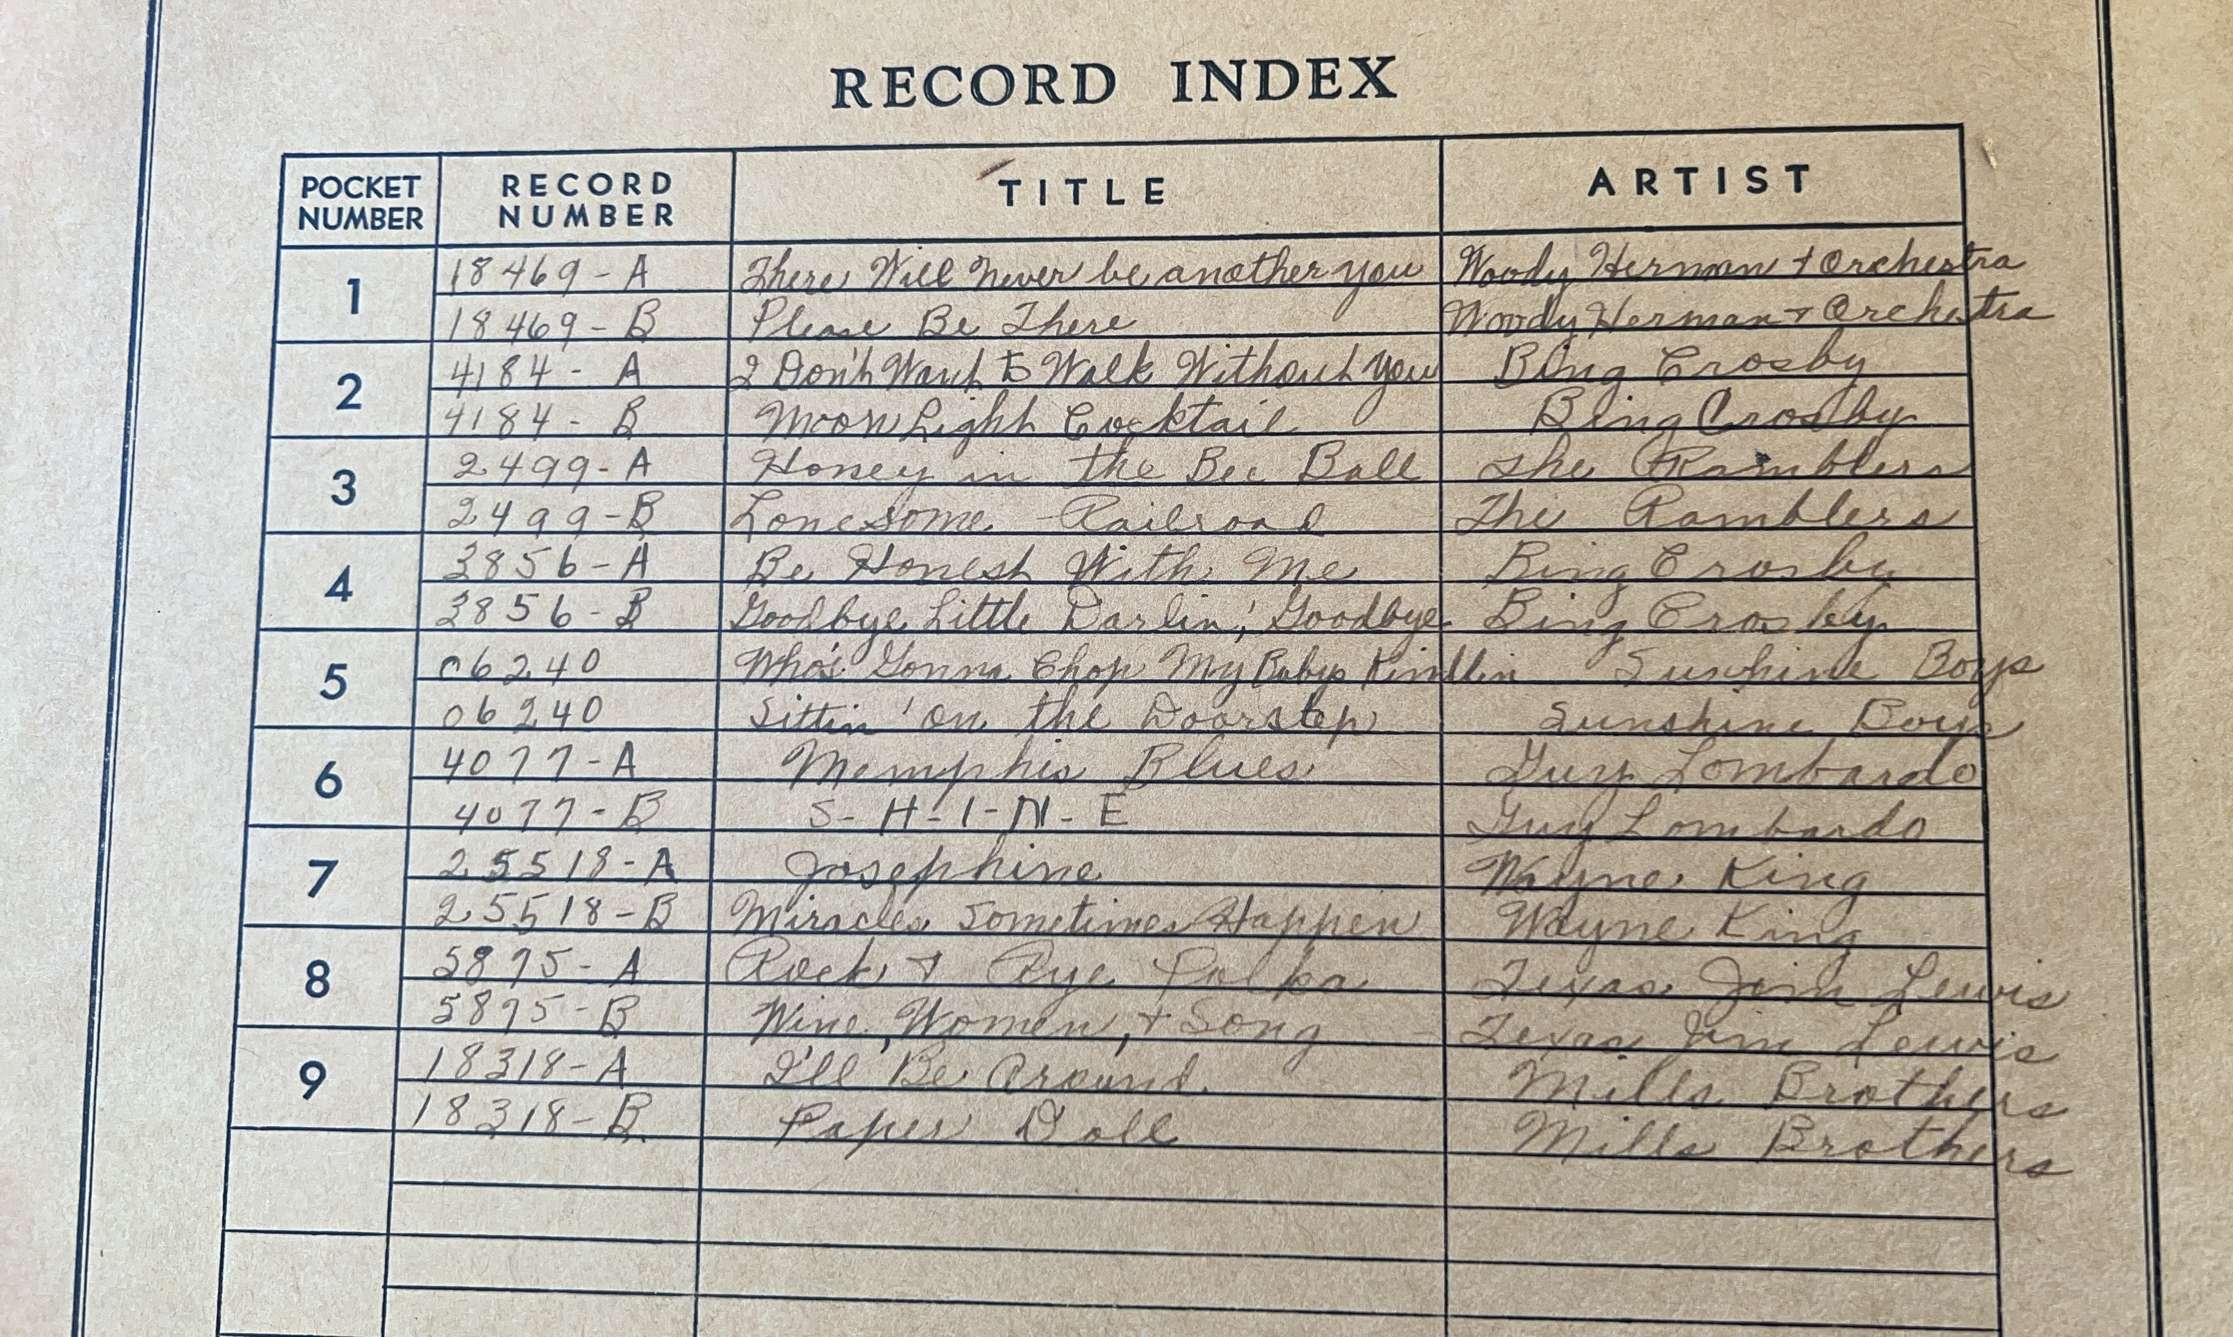 RECORD INDEX
POCKET NUMBER RECORD NUMBER TITLE ARTIST
1 18469-A There Will Never be another you Woody Herman + Orchestra
18469-B Please Be There Woody Herman + Orchestra
2 4184-A I Don't Want to Walk Without You Bing Crosby
4184-B Moon Light Cocktail Bing Crosby
3 2499-A Honey in the Bee Ball The Ramblers
2499-B Lonesome Railroad The Ramblers
4 3856-A Be Honest With Me Bing Crosby
3856-B Goodbye, Little Darlin', Goodbye Bing Crosby
5 06240 Who's Gonna Chop My Babys Kindlin Sunshine Boys
06240 Sittin' On the Doorstep Sunshine Boys
6 4077-A Memphis Blues Guy Lombardo
4077-B S-H-I-N-E Guy Lombardo
7 25518-A Josephine Wayne King
25518-B Miracles Sometimes Happen Wayne King
8 5875-A Rock + Rye Polka Texas Jim Lewis
5875-B Wine, Women, + Song Texas Jim Lewis
9 18318-A I'll Be Around Mills Brothers
18318-B Paper Doll Mills Brothers